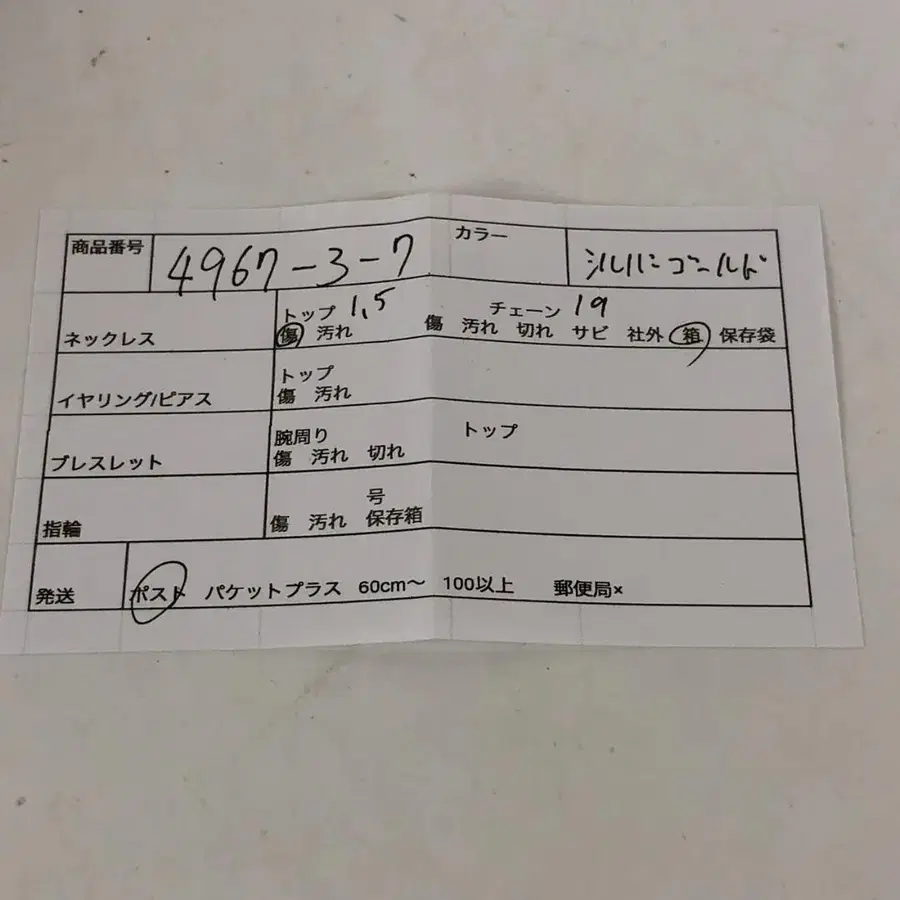 商品番号 4967-3-7 カラー シルバーゴールド
ネックレス トップ 1,5 チェーン 19
傷 汚れ 傷 汚れ 切れ サビ 社外 箱 保存袋
イヤリング/ピアス トップ
傷 汚れ
ブレスレット 腕周り トップ
傷 汚れ 切れ
指輪 号
傷 汚れ 保存箱
発送 ポスト パケットプラス 60cm～ 100以上 郵便局×